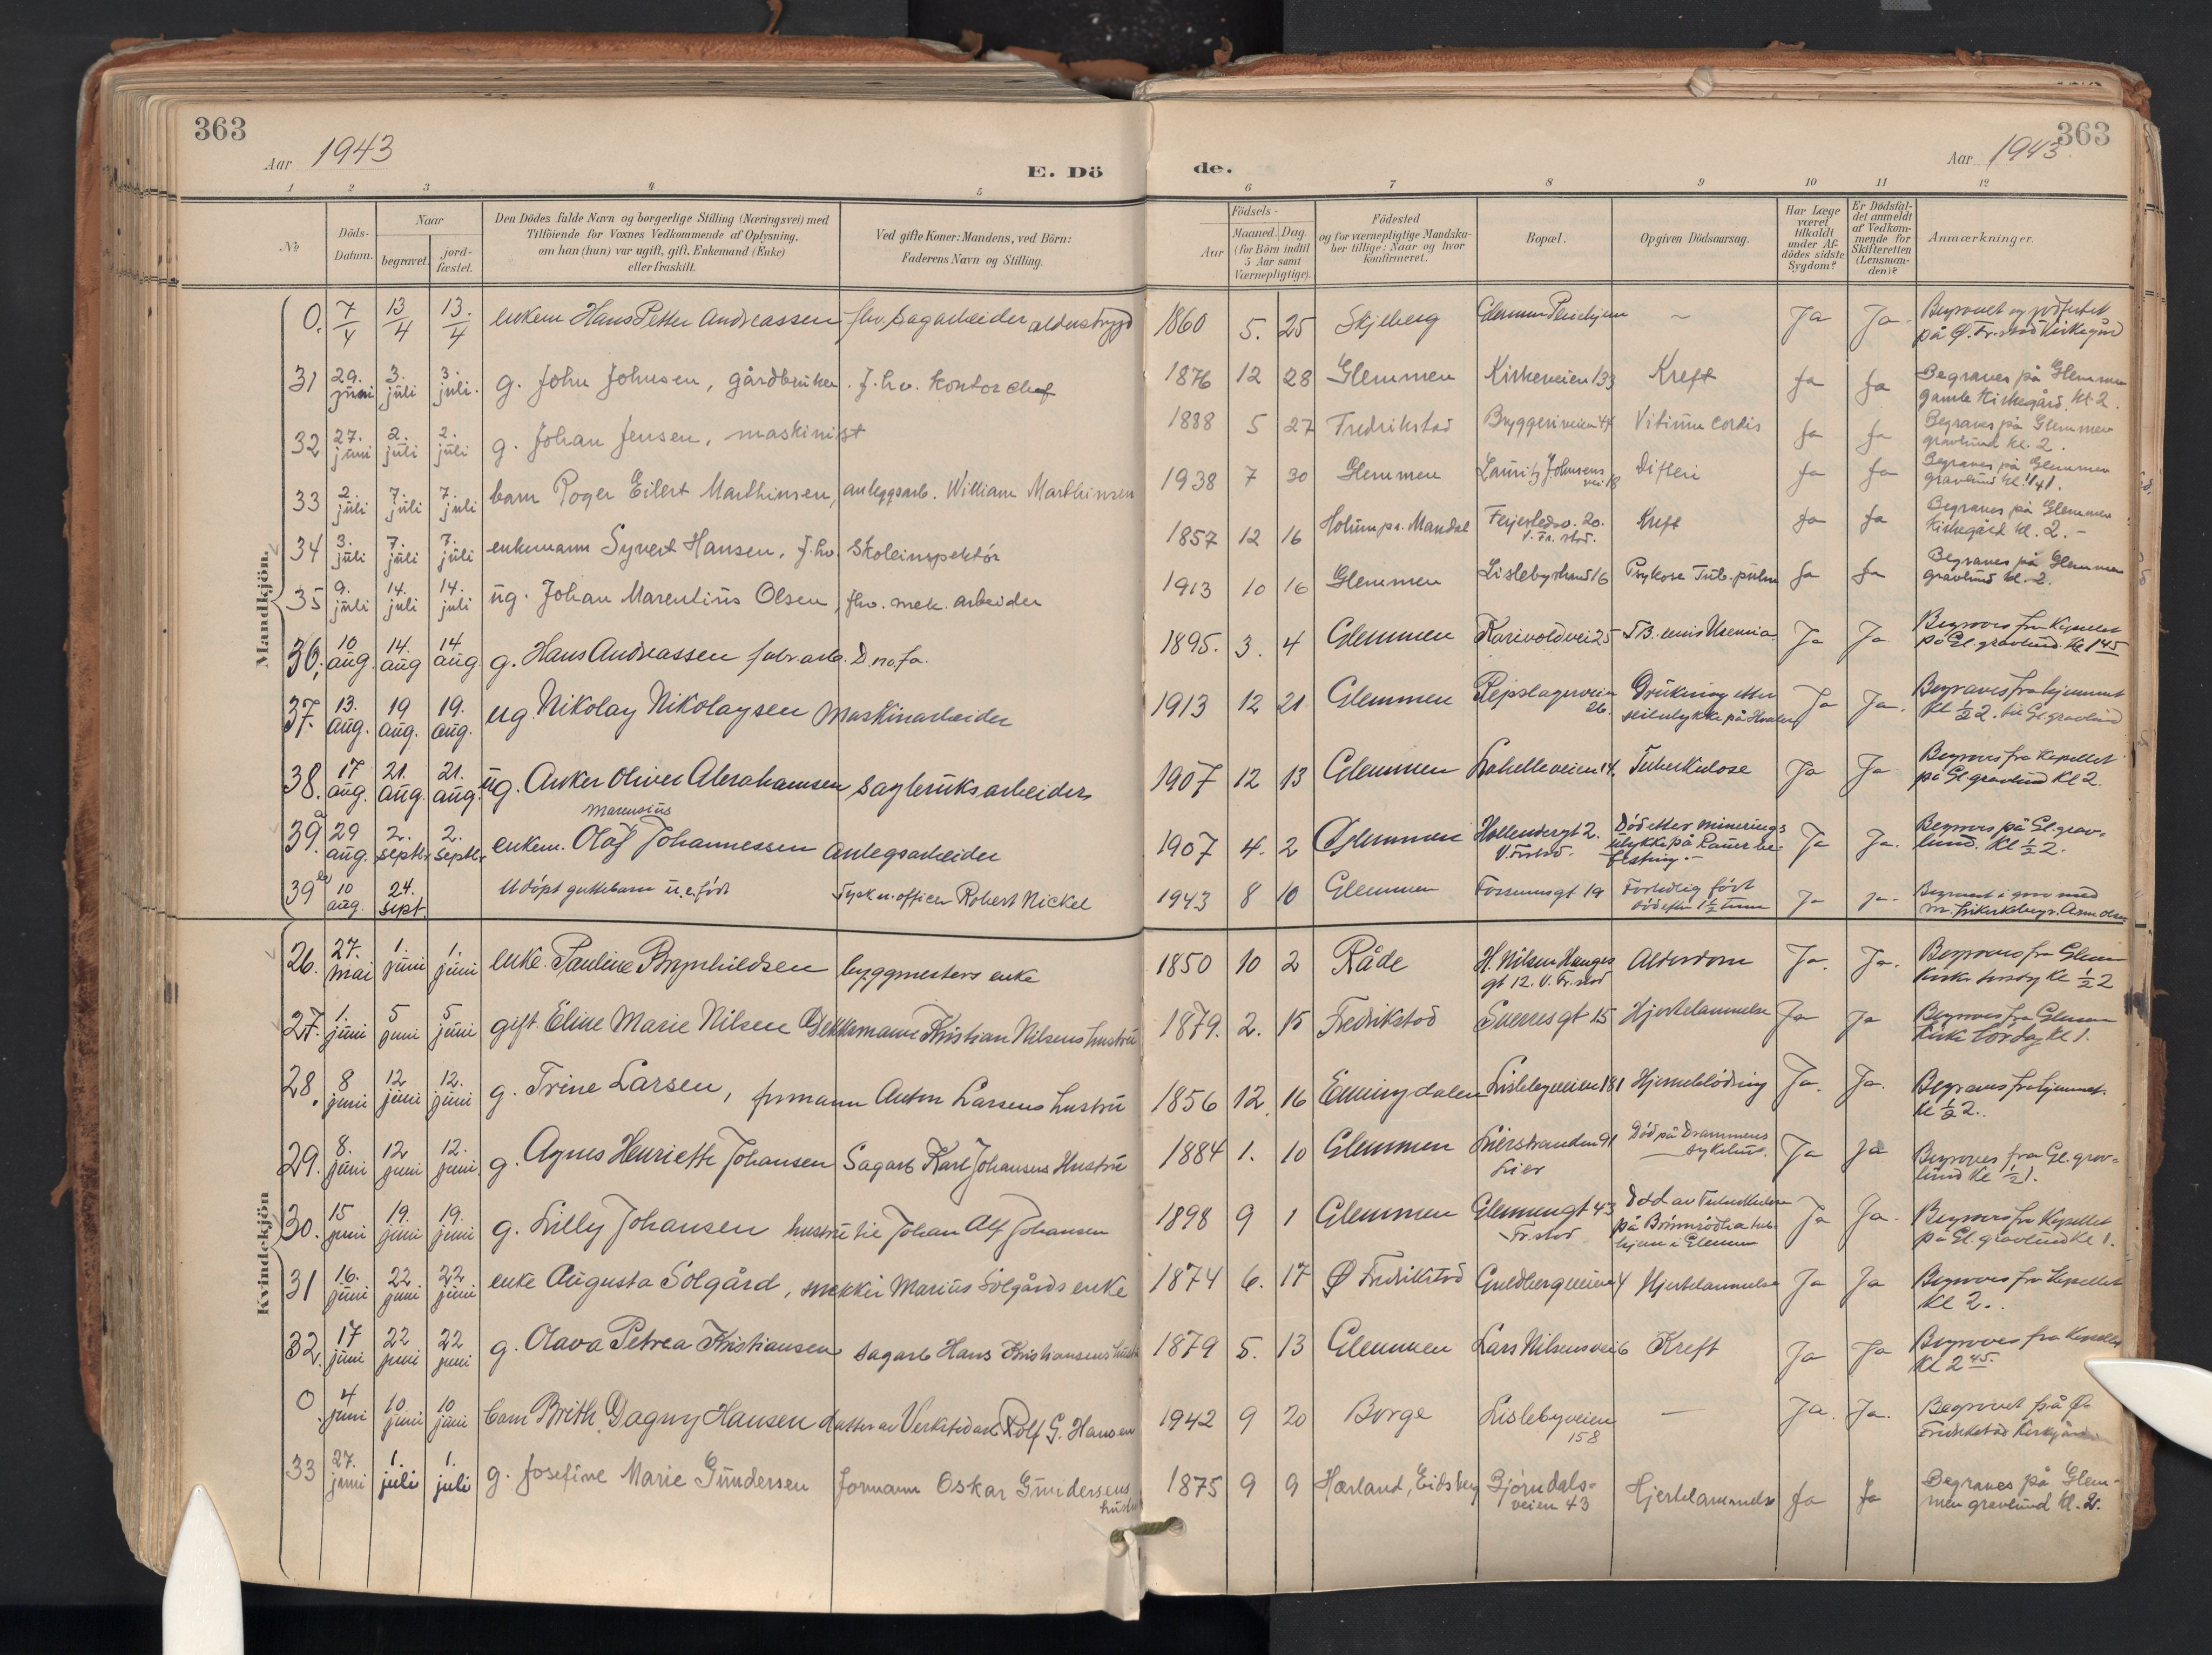 363
Aar 1943
E. Dö
de.
Aar 1943.
363
1 2 3 4 5 6 7 8 9 10 11 12
№
Döds-
Datum.
Naar
begravet.
jord-
fæstet.
Den Dödes fulde Navn og borgerlige Stilling (Næringsvei) med
Tilföiende for Voxnes Vedkommende af Oplysning,
om han (hun) var ugift, gift, Enkemand (Enke)
eller fraskilt.
Ved gifte Koner: Mandens, ved Börn:
Faderens Navn og Stilling.
Födsels-
Aar
Maaned. Dag.
(for Börn indtil
5 Aar samt
Værnepligtige).
Födested
og for værnepligtige Mandska-
ber tillige: Naar og hvor
konfirmeret.
Bopæl.
Opgiven Dödsaarsag.
Har Læge
været
tilkaldt
under Af-
dödes sidste
Sygdom?
Er Dödsfal-
det anmeldt
af Vedkom-
mende for
Skifteretten
(Lensman-
den)?
Anmærkninger.
Mandkjön.
0. 7/4 13/4 13./4 enkem Hans Petter Andreassen fhv. Sagarbeider alderstrygd 1860 5. 25 Skjeberg Glemmen Pleiehjem ~ Ja Ja. Begravet og jordfestet
på Ø. Fr.stad Kirkegård
31 29. juni 3. juli 3. juli. g. John Johnsen, gårdbruker. f.hv. kontorchef 1876 12 28 Glemmen Kirkeveien 133 Kreft Ja Ja Begraves på Glemmen
gamle Kirkegård. kl. 2.
32 27. juni 2. juli 2. juli g. Johan Jensen, maskinist 1888 5 27 Fredrikstad Bryggeriveien 44 Vitium cordis Ja Ja Begraves på Glemmen
gravlund kl. 2.
33 2. juli 7. juli 7. juli barn Roger Eilert Marthinsen, anleggsarb. William Marthinsen 1938 7 30 Glemmen Lauritz Johnsens vei 18 Difteri Ja Ja Begraves på Glemmen
gravlund kl.
34 3. juli 7. juli 7. juli enkemann Syvert Hansen, f.hv. Skoleinspektör 1857 12 16 Holum pr. Mandal Ferjestedsv. 20. V. Fr.stad. Kreft Ja Ja Begraves på Glemmen
Kirkegård kl. 2. -
35 9. juli 14. juli 14. juli ug. Johan Marentius Olsen, fhv. mek. arbeider 1913 10 16 Glemmen Lislebystrand 16 Psykose Tub. pulm Ja Ja Begraves på Glemmen
gravlund kl. 2.
36. 10 aug. 14. aug 14 aug g. Hans Andreassen fabr arb. D.no.fa. 1895. 3. 4 Glemmen Karivoldvei 25 Ja Ja Begraves fra Kapellet
på Gl. gravlund. kl. 1 45
37. 13. aug. 19 aug. 19. aug. ug. Nikolay Nikolaysen Maskinarbeider 1913 12 21 Glemmen Repslagerveien 26. Drukning etter
seilulykke på Hvaler Ja Ja. Begraves fra hjemmet
kl ½ 2. til Gl gravlund
38. 17 aug. 21. aug. 21. aug. ug. Anker Oliver Abrahamsen sagbruksarbeider 1907 12 13 Glemmen Lahelleveien 14. Tuberkulose Ja Ja Begraves fra Kapellet
på Gl gravlund Kl 2.
39. a 29 aug. 2. septbr 2. septbr. enkem. Olaf Marensius Johannessen Anlegsarbeider 1907 4. 2 Glemmen Hollendergt 2. V. Frstad. Död etter minerings
ulykke på Rauer be-
festning. - Ja Ja. Begraves på Gl. grav-
lund. Kl ½ 2.
39 b) 10 aug. 24. sept. Udöpt guttebarn u.e. födt Tysk u.officer Robert Nickel 1943 8 10 Glemmen Fossumsgt 19 Fortidlig födt
död efter 1½ time Ja Ja. Begravet i grav med
Kvindekjön
26. 27. mai 1. juni 1. juni enke. Pauline Brynhildsen byggmesters enke 1850 10 2 Råde H. Nilsen Hauges
gt 12. V. Fr.stad Alderdom Ja. Ja. Begraves fra Glem
kirke tirsdag kl ½ 2
27. 1. juni 5 juni 5 juni gift. Eline Marie Nilsen Kristian Nilsens hustru 1879. 2. 15 Fredrikstad Sverresgt 15 Hjertelammelse Ja Ja Begraves fra Glemmen
kirke lördag kl 1.
28. 8 juni 12 juni 12. juni g. Trine Larsen, formann Anton Larsens hustru 1856 12. 16 Enningdalen Lislebyveien 181 Hjerneblödning Ja. Ja. Begraves fra hjemmet.
kl ½ 2.
29. 8. juni 12 juni 12. juni g. Agnes Henriette Johansen Sagarb Karl Johansens Hustru 1884 1. 10 Glemmen Lierstranden 91
Lier Död på Drammens
sykehus. Ja Ja Begraves fra Gl. grav-
lund Kl ½ 1.
30. 15 juni 19. juni 19. juni g. Lilly Johansen hustru til Johan Alf Johansen 1898 9 1 Glemmen Glemmengt 43
Fr.stad Död av Tuberkulose
på tub.
hjem i Glemmen Ja Ja. Begraves fra Kapellet
på Gl. gravlund Kl 1.
31 16. juni 22. juni 22 juni enke Augusta Solgård, snekker Marius Solgårds enke 1874 6. 17 Ø Fredrikstad Guldbergveien 4 Hjertelammelse Ja Ja Begraves fra Kapellet
kl 2..
32. 17 juni 22 juni 22 juni g. Olava Petrea Kristiansen Sagarb Hans Kristiansens hustr 1879 5. 13 Glemmen Lars Nilsensvei 6 Kreft Ja Ja Begraves fra Kapellet
Kl 2 45.
0 4 juni 10 juni 10 juni barn Brith Dagny Hansen datter av Verkstedarb Rolf G. Hansen 1942 9 20 Borge Lislebyveien
158 — Ja. Ja. Begravet på Ø.
Fredrikstad kirkegård
33 27. juni 1. juli 1. juli g. Josefine Marie Gundersen formann Oskar Gundersens
hustru 1875 9 9 Hærland, Eidsberg Bjørndals-
veien 43 Hjertelammelse Ja Ja Begraves på Glem-
men gravlund kl. 2.